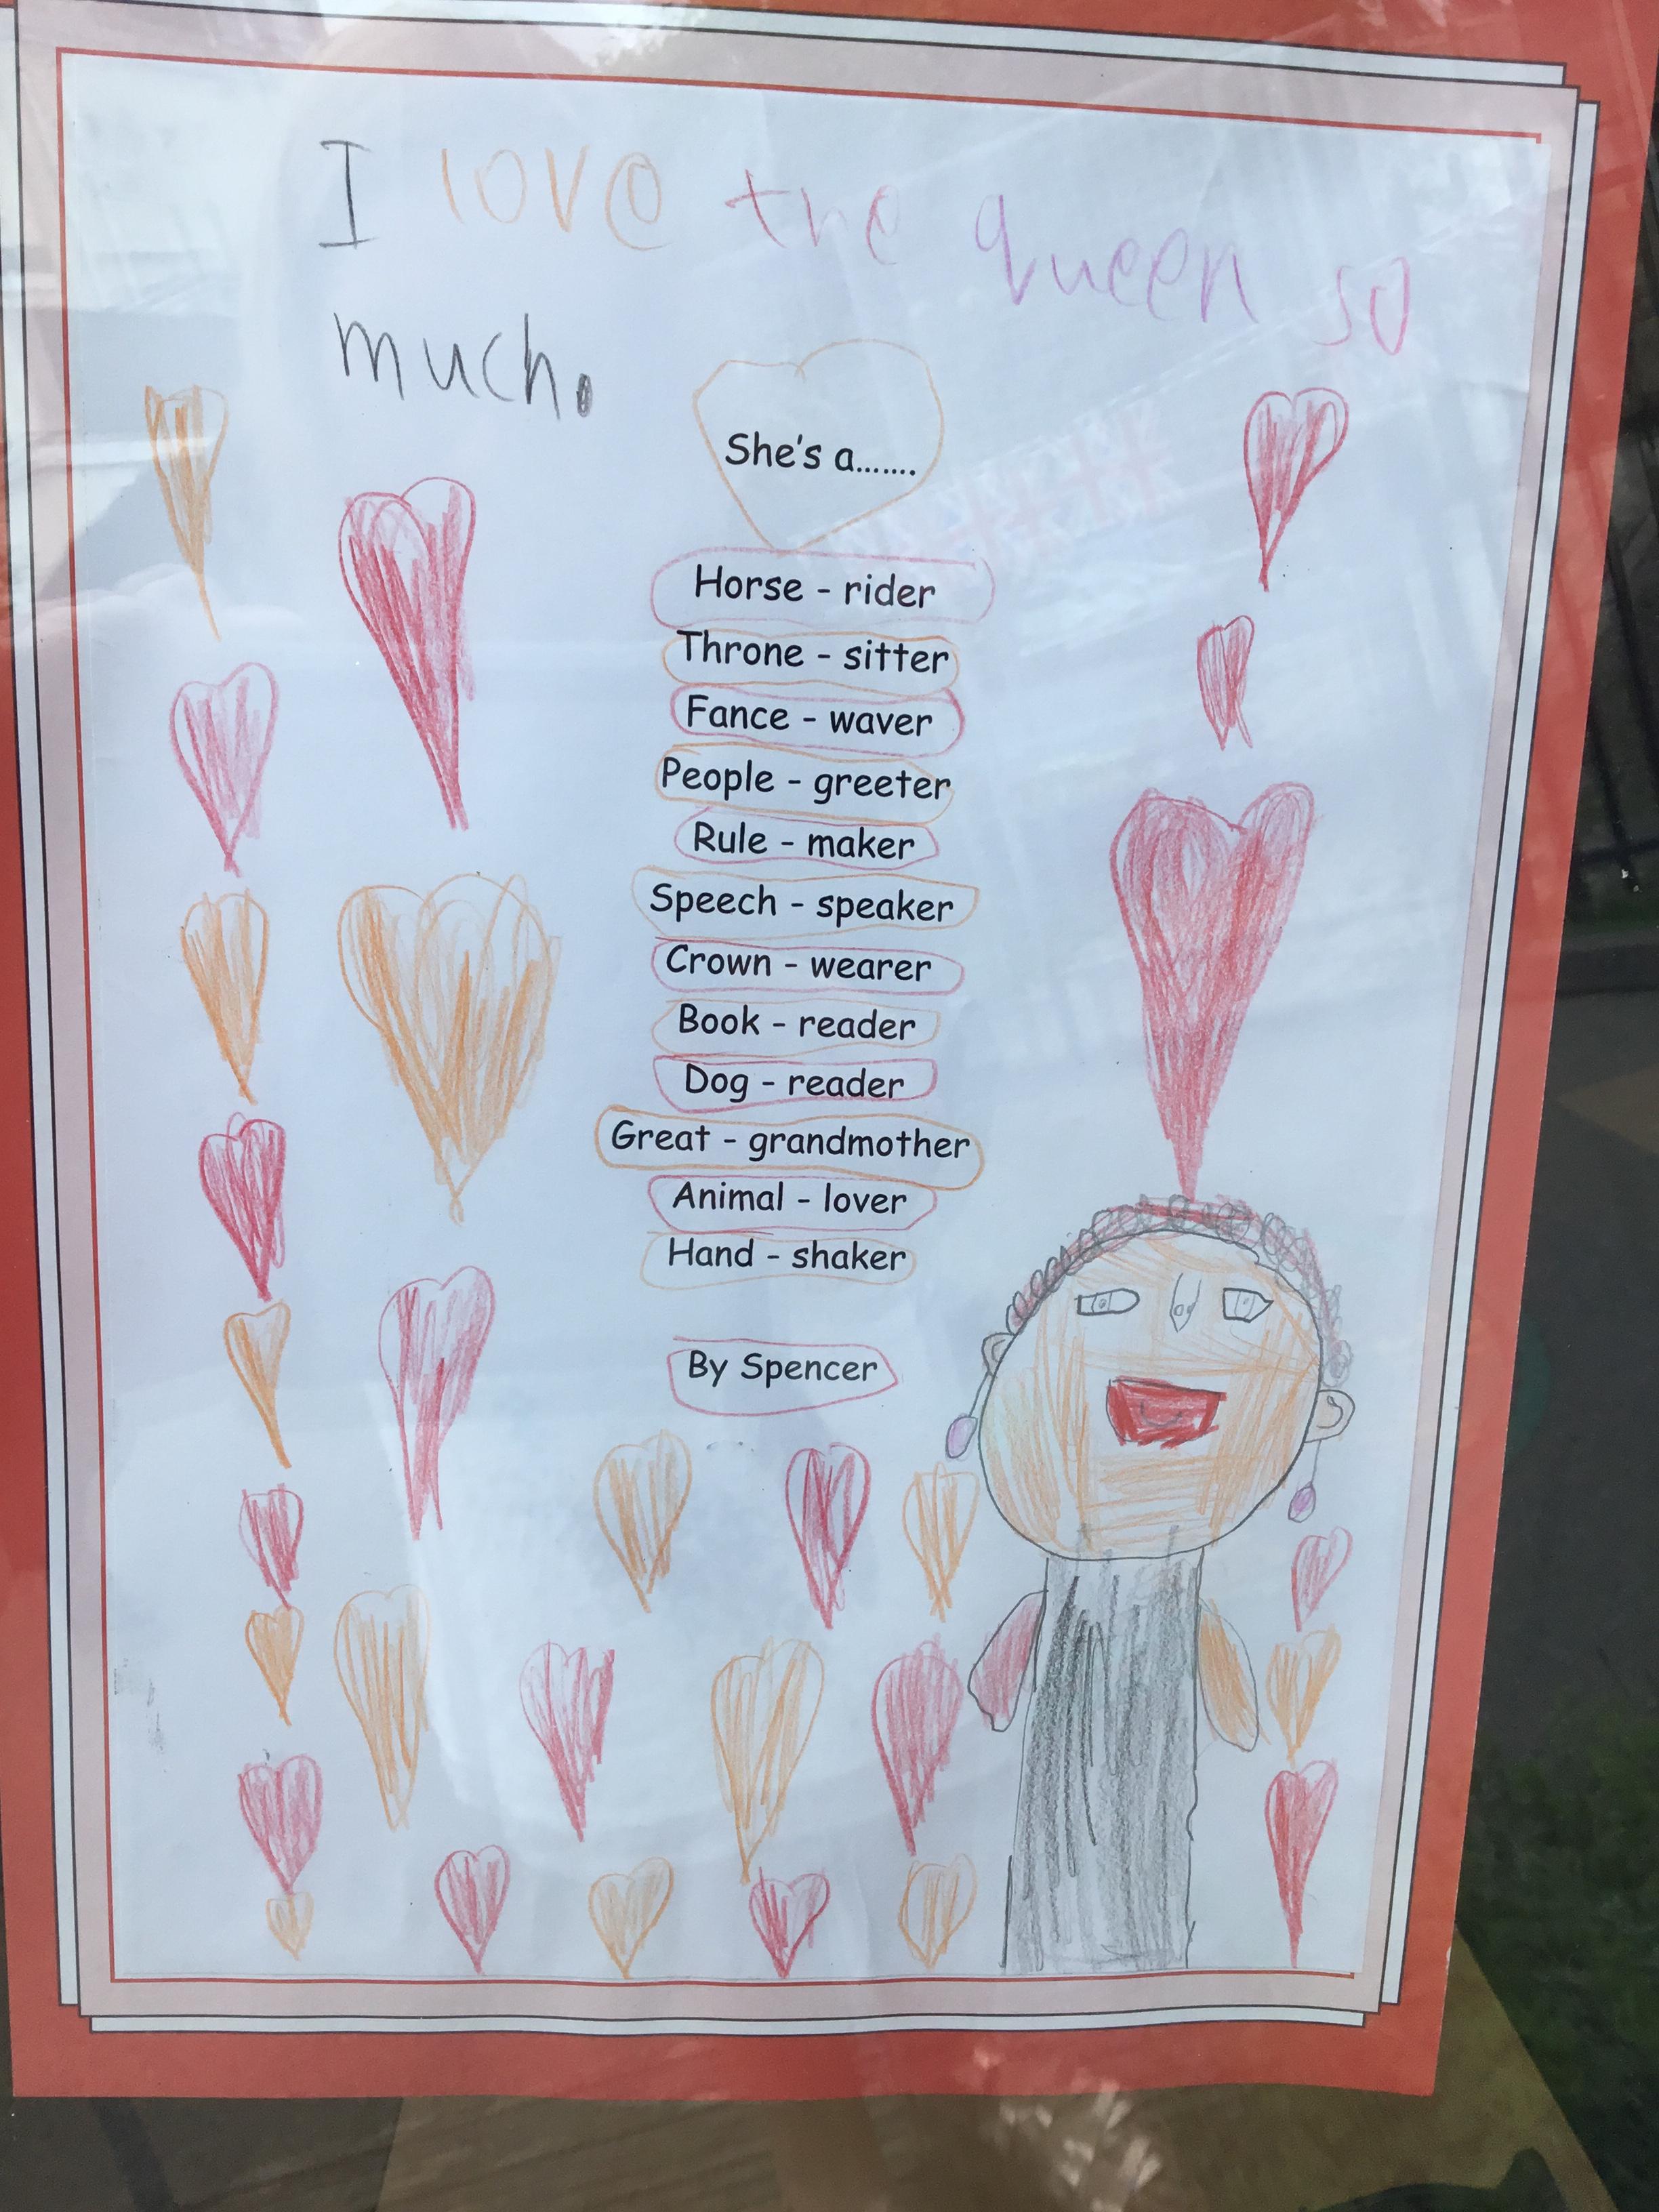 I love the queen so
much.
She's a.......
Horse - rider
Throne - sitter
Fance - waver
People - greeter
Rule - maker
Speech - speaker
Crown - wearer
Book - reader
Dog - reader
Great - grandmother
Animal - lover
Hand - shaker
By Spencer